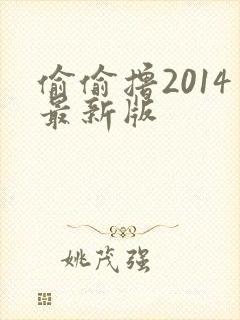 偷偷撸2014
最新版
姚茂强